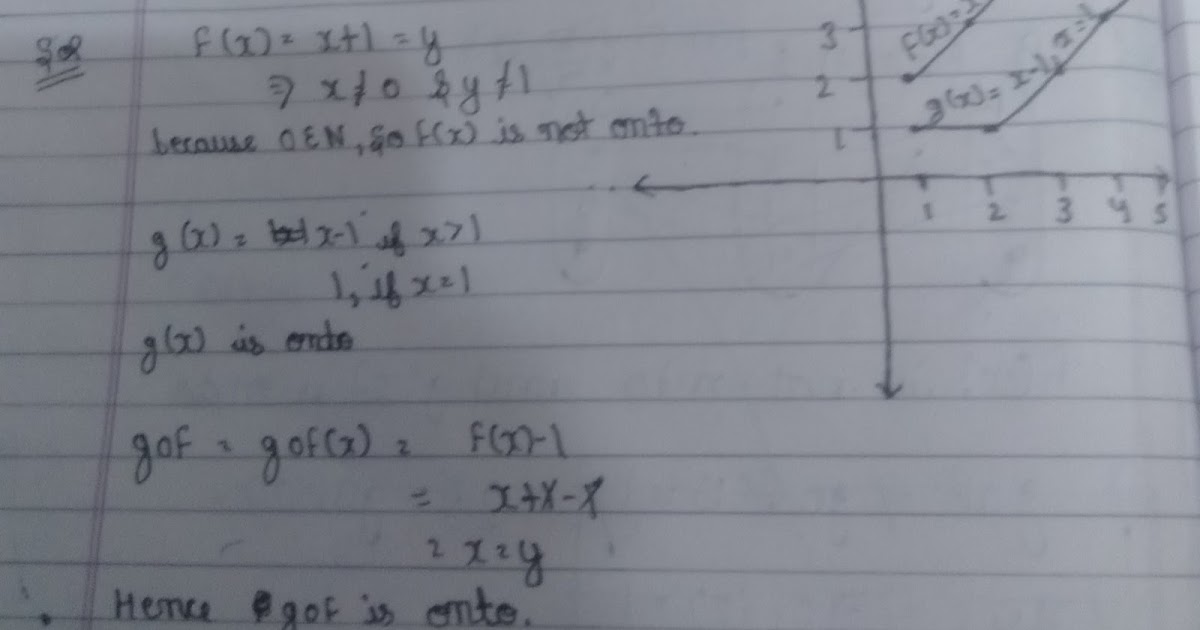 Sol
f(x) = x+1 = y
⇒ x ≠ 0 & y ≠ 1
because 0 ∈ N, so f(x) is not onto.
g(x) = x-1 if x>1
1, if x=1
g(x) is onto
gof = gof(x) = f(x)-1
= x+1-1
= x=y
Hence gof is onto.
3
2
1
f(x)=
g(x)= x-1,
1 2 3 4 5